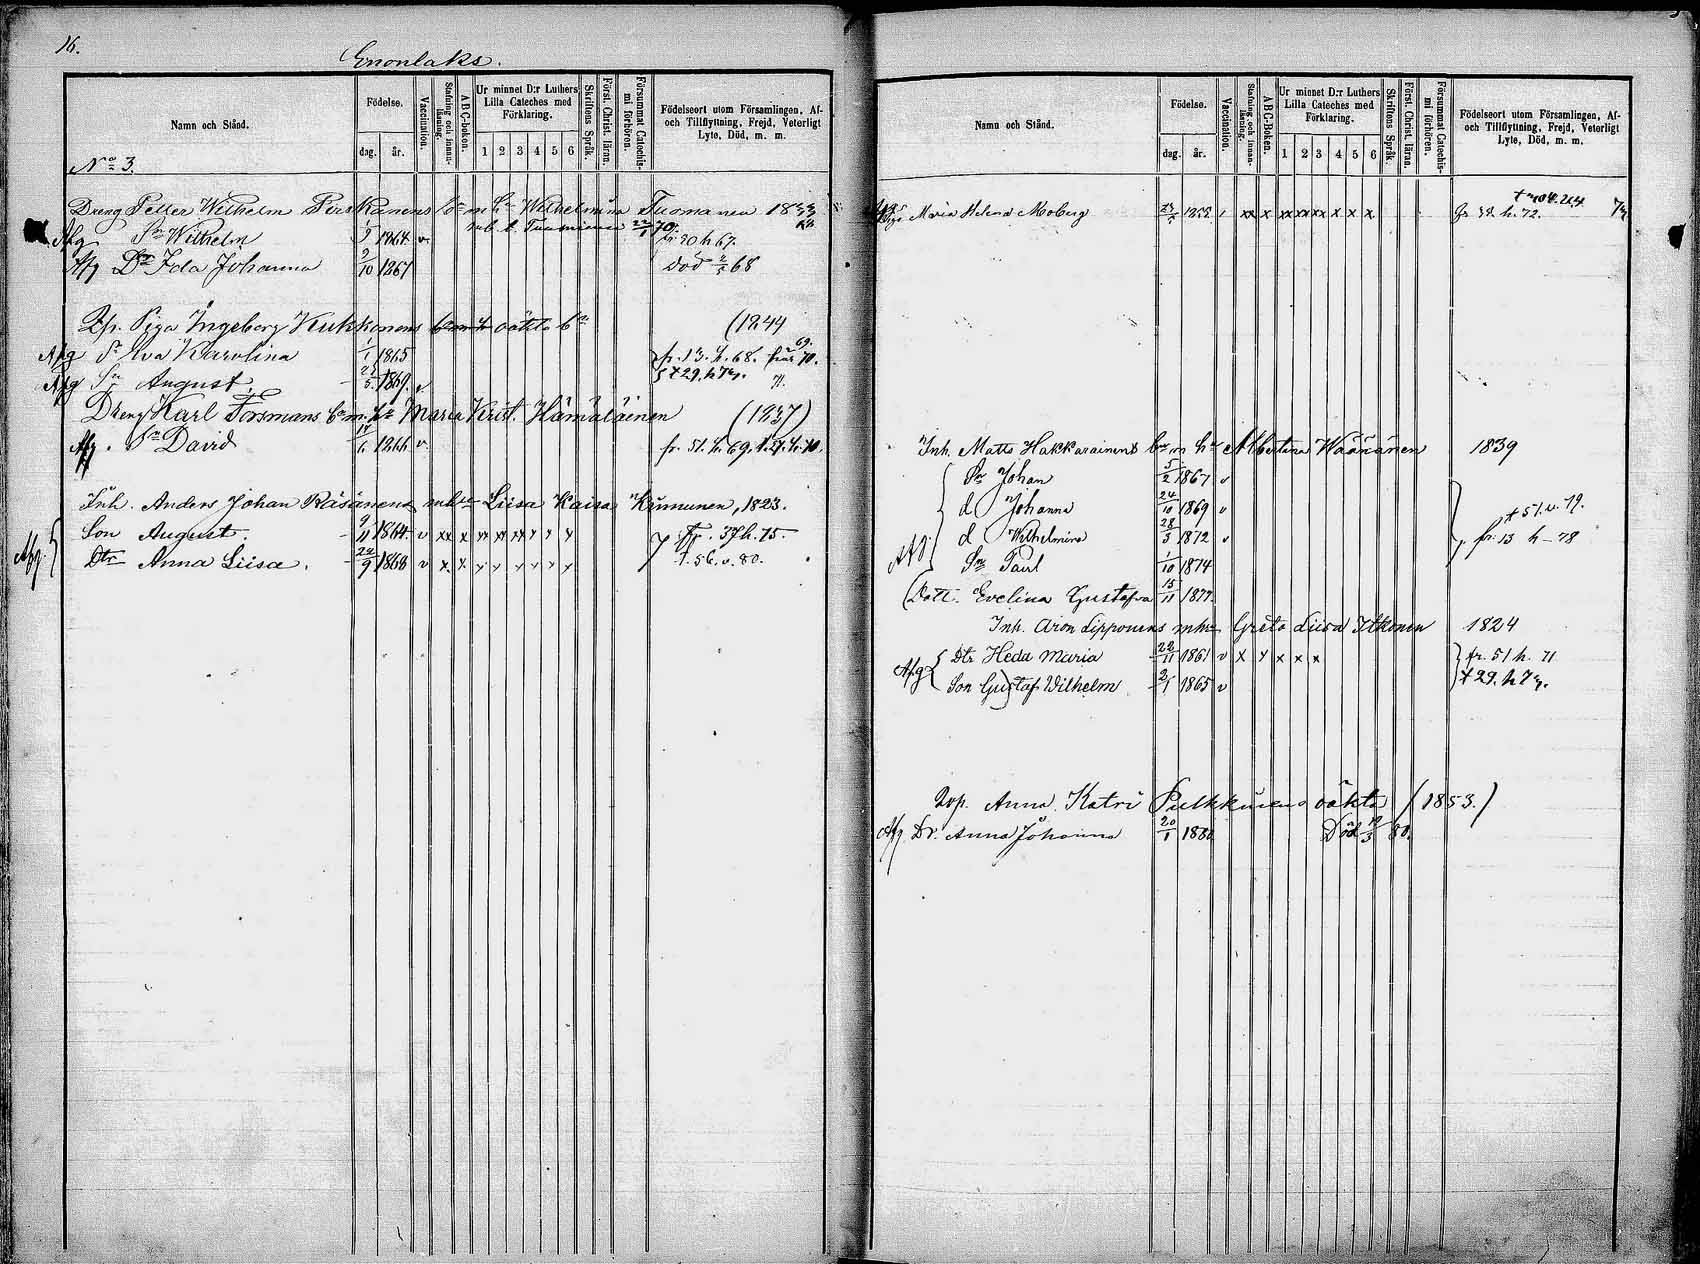 16.
Enonlaks.
Namn och Stånd.
Födelse.
dag. år.
Vaccination.
Stafning och innanläsning.
ABC-boken.
Ur minnet D:r Luthers Lilla Cateches med Förklaring.
1 2 3 4 5 6
Skriftens Språk.
Först. Christ. läran.
Försummat Catechismi förhören.
Födelseort utom Församlingen, Af- och Tillflyttning, Frejd, Veterligt Lyte, Död, m. m.
No 3.
Dreng Petter Wilhelm m h Wilhelmina Tuomanen 1833
Afg Sn Wilhelm 1864 v fr. 20 h 67.
Afg Dr Ida Johanna 9/10 1867 död 68
Piga Ingeborg Kukkonens oäkta (1844
Afg Eva Karolina 1/1 1865 fr. 13. h. 68. från 70.
Afg Sn August 1869. v + 29. h 71.
Dreng Karl Forsmans m. h. Maria Krist. Hämäläinen (1837)
Afg. Sn David 1866 v. fr. 51. h. 69.
Inh. Anders Johan Räsänens Liisa Kaisa Kinnunen, 1823.
Afg.
Son August. 9/11 1864 v xx x xx xx x x x fr. 37 h. 75.
Dtr Anna Liisa. 9 1868 v x x x x x x x x t. 56. v. 80.
Namn och Stånd.
Födelse.
dag. år.
Vaccination.
Stafning och innanläsning.
ABC-Boken.
Ur minnet D:r Luthers Lilla Cateches med Förklaring.
1 2 3 4 5 6
Skriftens Språk.
Först. Christ. läran.
Försummat Catechismi förhören.
Födelseort utom Församlingen, Af- och Tillflyttning, Frejd, Veterligt Lyte, Död, m. m.
Maria Helena Moberg xx x xx xx x x x x h. 72.
Inh. Matts Hakkarainens m h Albertina Wäänänen 1839
Sn Johan 5/2 1867 v
d Johanna 24/10 1869 v + 51. v. 79.
d Wilhelmina 28/3 1872 v fr. 13 h - 78
Afg.
Sn Paul 1/10 1874
Dott. Evelina Gustafva 15/11 1877
Inh. Aron Lipponens Greta Liisa Itkonen 1824
Afg
Dtr Heda Maria 22/11 1861 v x x x x x fr. 51 h. 71
Son Gustaf Wilhelm 1865 v + 29. h 71.
Anna Katri Pulkkinens oäkta (1853.)
Afg. Dr. Anna Johanna 20/1 1880 Död 80.